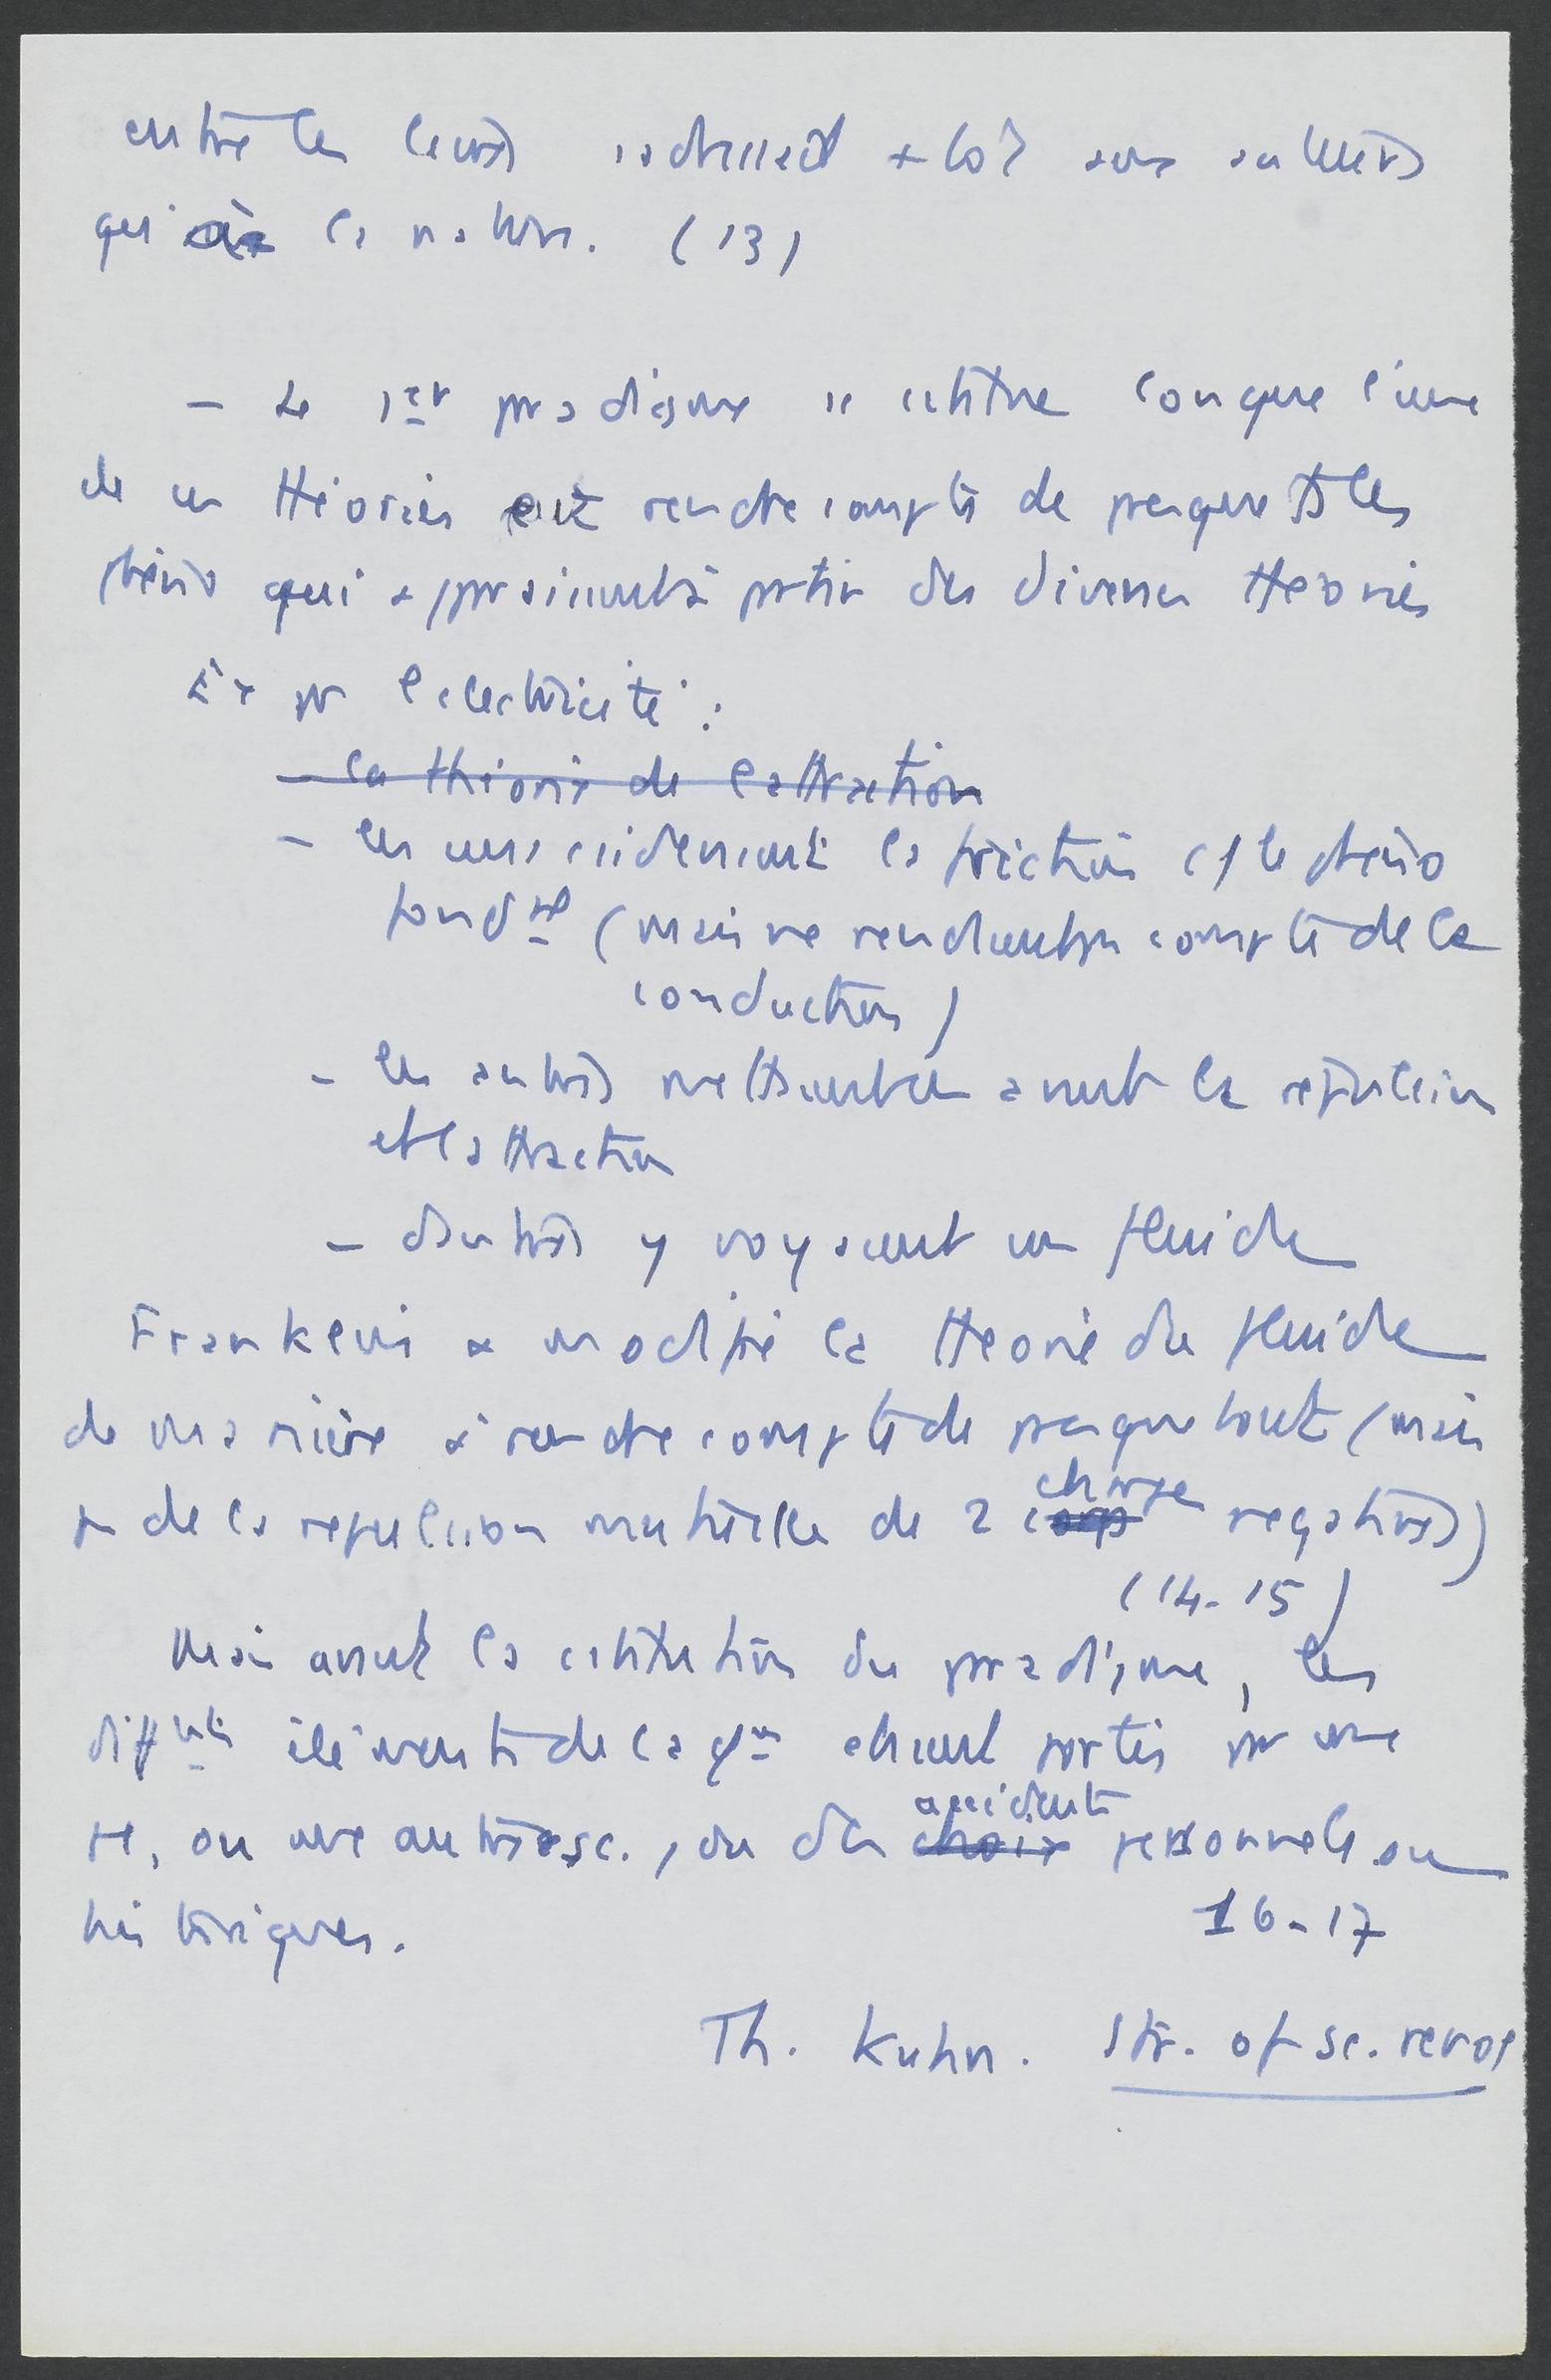 entre les livres s'adressent alors aux autres
qu'à la nature. (13)
- Le 1er paradigme se constitue lorsque l'une
de ces théories peut rendre compte de presque ts les
phéno qui apparaissent à partir des diverses théories
Ex pr l'électricité :
- la théorie de l'attraction
- les uns considéraient la friction c/ le phéno
fondtal (mais ne rendaient pas compte de la
conduction)
- les autres mettaient en avant la répulsion
et l'attraction
- d'autres y voyaient un fluide
Franklin a modifié la théorie du fluide
de manière à rendre compte de presque tout (mais
pas de la répulsion mutuelle de 2 corps charges négatives)
(14-15)
Mais avant la constitution du paradigme, les
diffnts éléments de la étaient portés par une
ou une autre sc., ou des choix accidents personnels ou
historiques.
16-17
Th. Kuhn. Str. of sc. revol